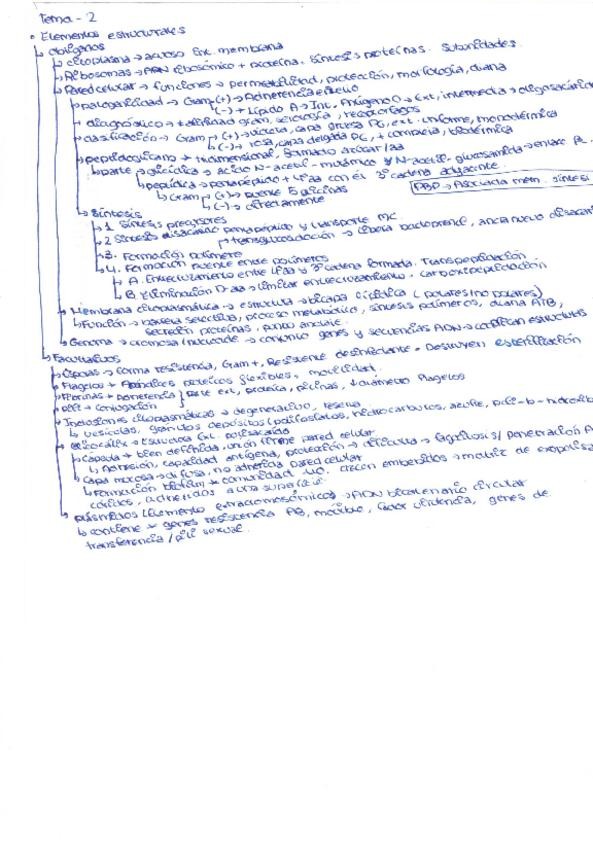 Tema - 2
• Elementos estructurales
↳ Obligados
↳ Citoplasma → acuoso Ext. membrana
↳ Ribosomas → ARN ribosómico + proteína. Síntesis proteínas. Subunidades.
↳ Pared celular → Funciones → permeabilidad, protección, morfología, diana
↳ patogenicidad → Gram (+) → Adherencia
↳ (-) + Lípido A → Int. Antígeno O → Ext, intermedia → oligosacárido
↳ diagnóstico → + afinidad gram, serología, receptor fagos
↳ clasificación → Gram (+) → violeta, capa gruesa PG, ext. uniforme, monodérmica
↳ (-) → rosa, capa delgada PG, + compleja, bidérmica
↳ peptidoglucano → tridimensional, formado azúcar/aa
↳ parte → glucídica → Ácido N-acetil-murámico y N-acetil-glucosamida → enlace β
↳ peptídica → pentapéptido + 4º aa con el 3º cadena adyacente
↳ Gram (+) → puente 5 glicinas
↳ (-) → directamente
PBP → Asociada mem. síntesi
↳ Síntesis
↳ 1. Síntesis precursores
↳ 2 Síntesis disacárido pentapéptido y transporte MC
↳ transglucosidación → libera bactoprenol, ancla nuevo disacari
↳ 3. Formación polímero
↳ 4. Formación puente entre polímeros
↳ A. Entrecruzamiento entre 4º aa y 3º cadena formada. Transpeptidación
↳ B. Eliminación D-aa → limitar entrecruzamiento. Carboxipeptidación
↳ Membrana citoplasmática → estructura → bicapa lipídica (polares/no polares)
↳ Función → barrera selectiva, proceso metabólico, síntesis polímeros, diana ATB,
secreción proteínas, punto anclaje.
↳ Genoma → cromosoma/nucleoide → conjunto genes y secuencias ADN → codifican estructuras
↳ Facultativos
↳ Esporas → forma resistencia, Gram +, Resistente desinfectante. Destruyen esterilización
↳ Flagelos + Apéndices proteicos flexibles, movilidad.
↳ Fimbrias + Adherencia } Parte ext, proteica, pilinas, ↓ diámetro Flagelos
↳ Pili + conjugación
↳ Inclusiones citoplasmáticas → degenerativo, reserva
↳ vesículas, gránulos depósitos (polifosfatos, hidrocarburos, azufre, poli-b-hidroxib
↳ Glicocálix → Estructura Ext. polisacárido
↳ Cápsula + bien definida, unión firme pared celular
↳ Adhesión, capacidad antígena, protección → dificulta → fagolisis / penetración A
↳ Capa mucosa → difusa, no adherida pared celular
↳ Formación biofilm + comunidad µo. crecen embebidos → matriz de exopolisa
áridos, adheridos a una superficie
↳ plásmidos (Elemento extracromosómico) → ADN bicatenario circular
↳ contiene + genes resistencia AB, movible, factor virulencia, genes de
transferencia / pili sexual.